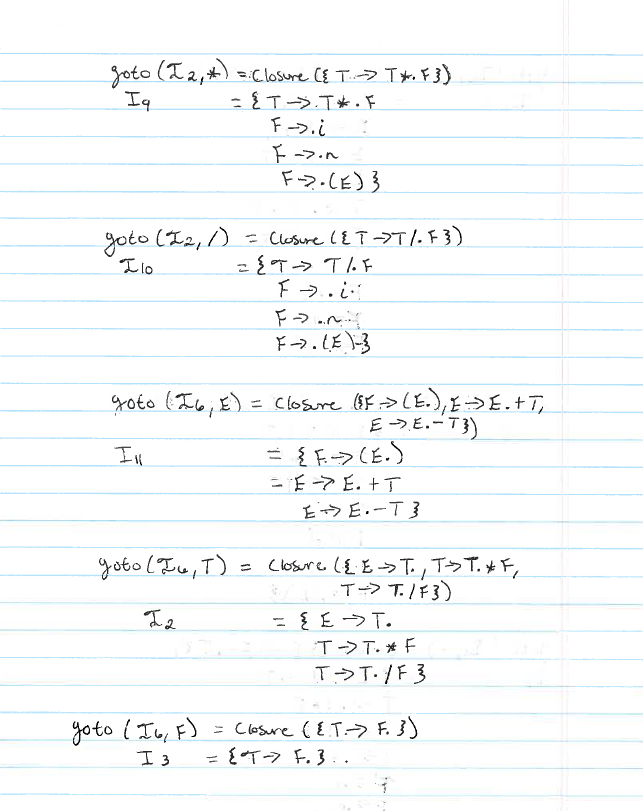 goto (I2,*) = Closure ({ T -> T*.F})
I9 = { T -> T*.F
F -> .i
F -> .n
F -> .(E) }
goto (I2,/) = Closure ({ T -> T/.F})
I10 = { T -> T/.F
F -> .i
F -> .n
F -> .(E) }
goto (I6,E) = Closure ({F -> (E.), E -> E.+T,
E -> E.-T})
I11 = { F -> (E.)
= E -> E.+T
E -> E.-T }
goto (I6,T) = Closure ({ E -> T., T -> T.*F,
T -> T./F})
I2 = { E -> T.
T -> T.*F
T -> T./F }
goto (I6,F) = Closure ({ T -> F.})
I3 = { T -> F.}